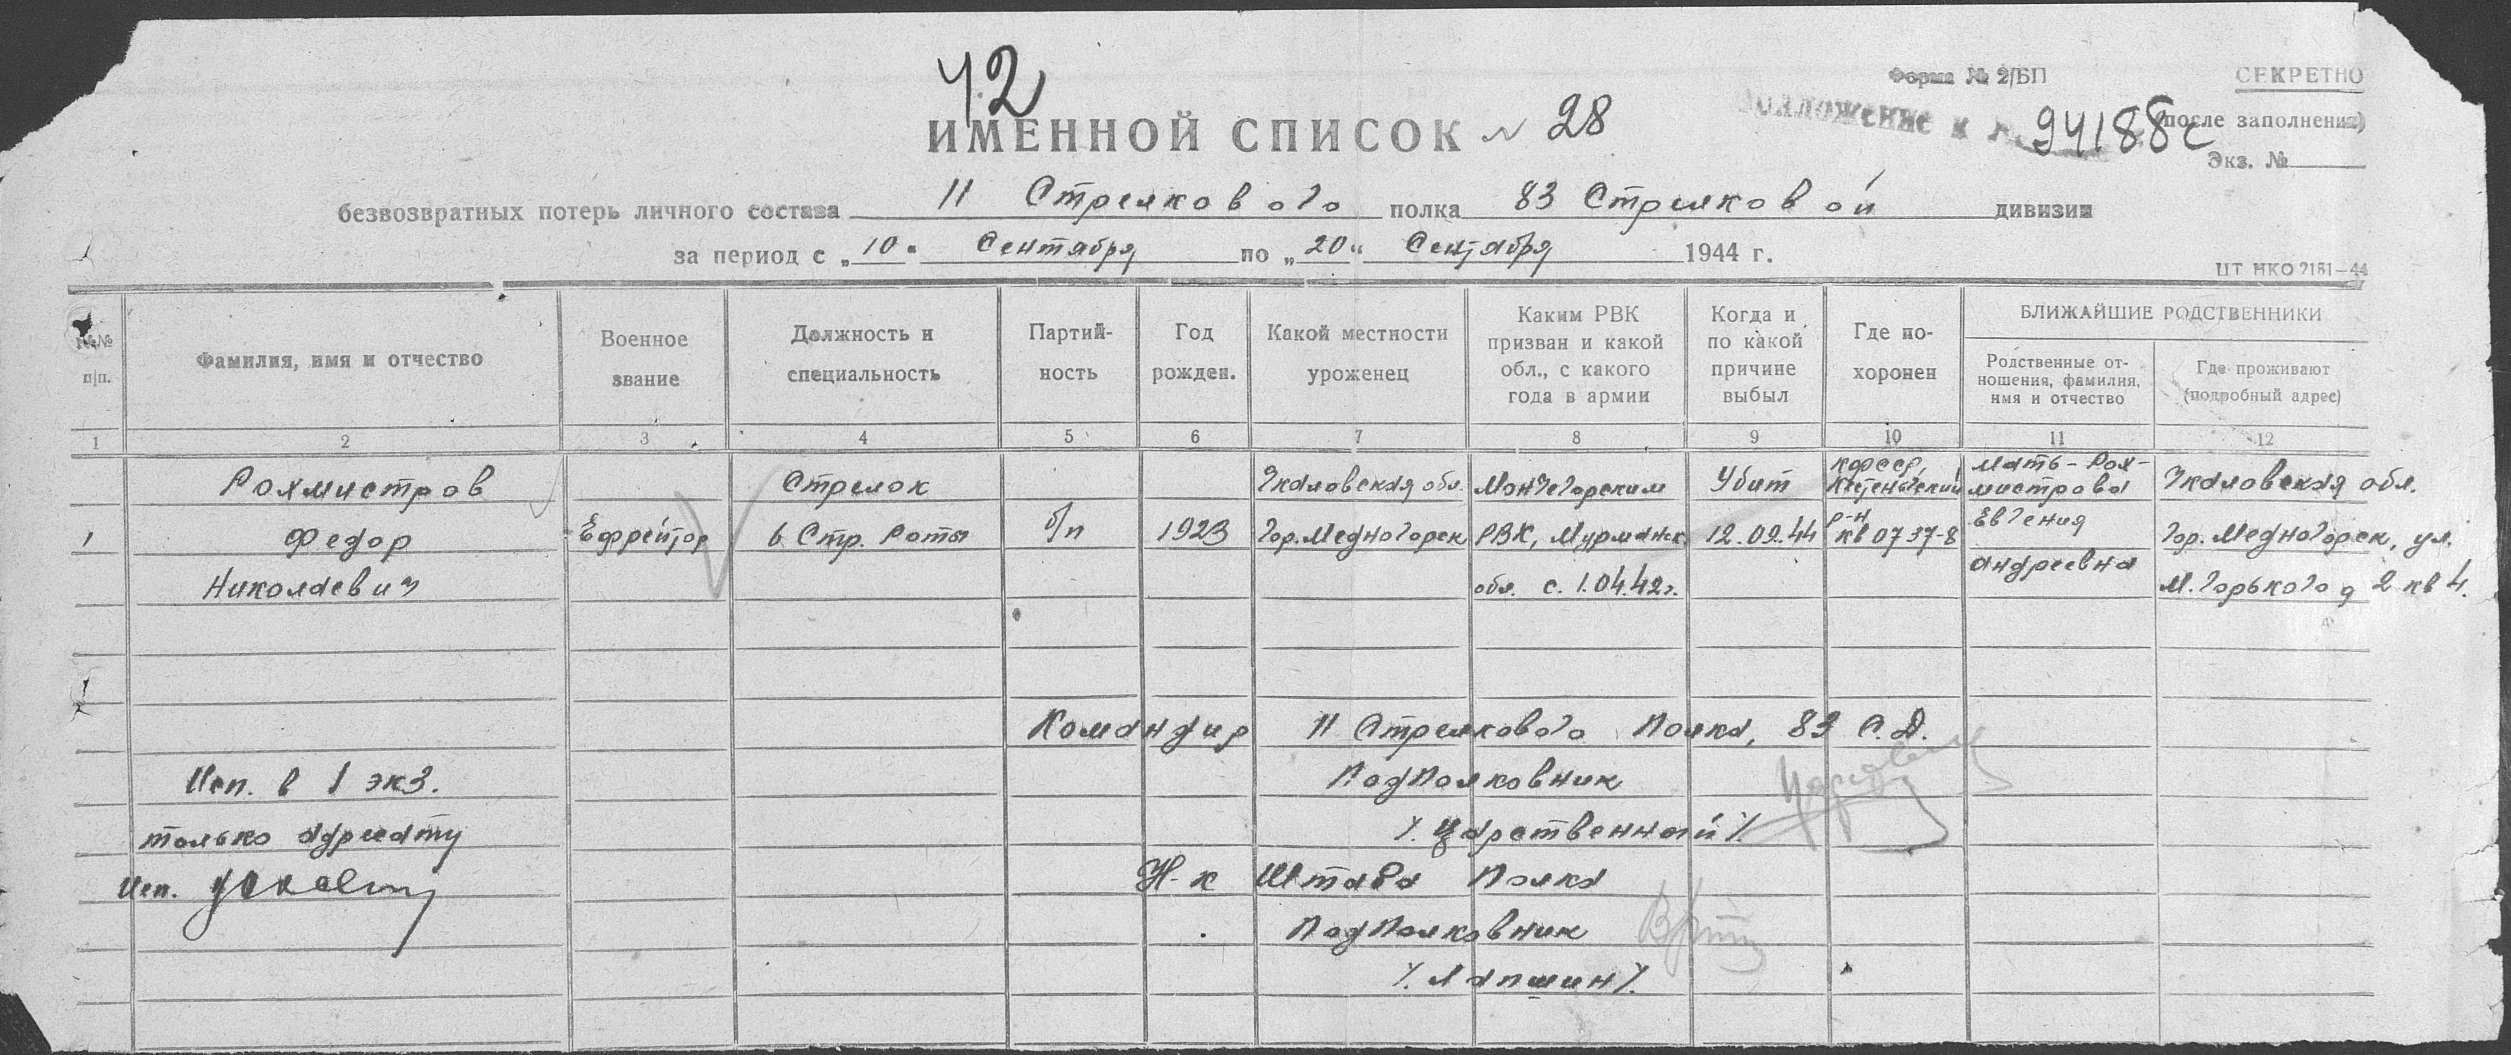 42
Форма № 2/БП
СЕКРЕТНО
ИМЕННОЙ СПИСОК № 28
94188с
(после заполнения)
Экз. №
безвозвратных потерь личного состава 11 Стрелкового полка 83 Стрелковой дивизии
за период с „10" Сентября по „20" Сентября 1944 г.
ЦТ НКО 2181—44
№№ п|п.
Фамилия, имя и отчество
Военное звание
Должность и специальность
Партий-
ность
Год рожден.
Какой местности уроженец
Каким РВК
призван и какой
обл., с какого
года в армии
Когда и
по какой
причине
выбыл
Где по-
хоронен
БЛИЖАЙШИЕ РОДСТВЕННИКИ
Родственные от-
ношения, фамилия,
имя и отчество
Где проживают
(подробный адрес)
1 2 3 4 5 6 7 8 9 10 11 12
1
Рохмистров
Федор
Николаевич
Ефрейтор
Стрелок
6 Стр. Роты
б/п
1923
Чкаловская обл.
Гор. Медногорск
Мончегорским
РВК, Мурманск.
обл. с. 1.04.42г.
Убит
12.09.44
КФССР,
р-н
кв 0737-8
Мать - Рох-
мистрова
Евгения
Андреевна
Чкаловская обл.
Гор. Медногорск, ул.
М. Горького д 2 кв 4.
Командир 11 Стрелкового Полка, 83 С.Д.
Подполковник
/. Царственный /.
Н-к Штаба Полка
Подполковник
/. Лапшин /.
Исп. в 1 экз.
только адресату
Исп.